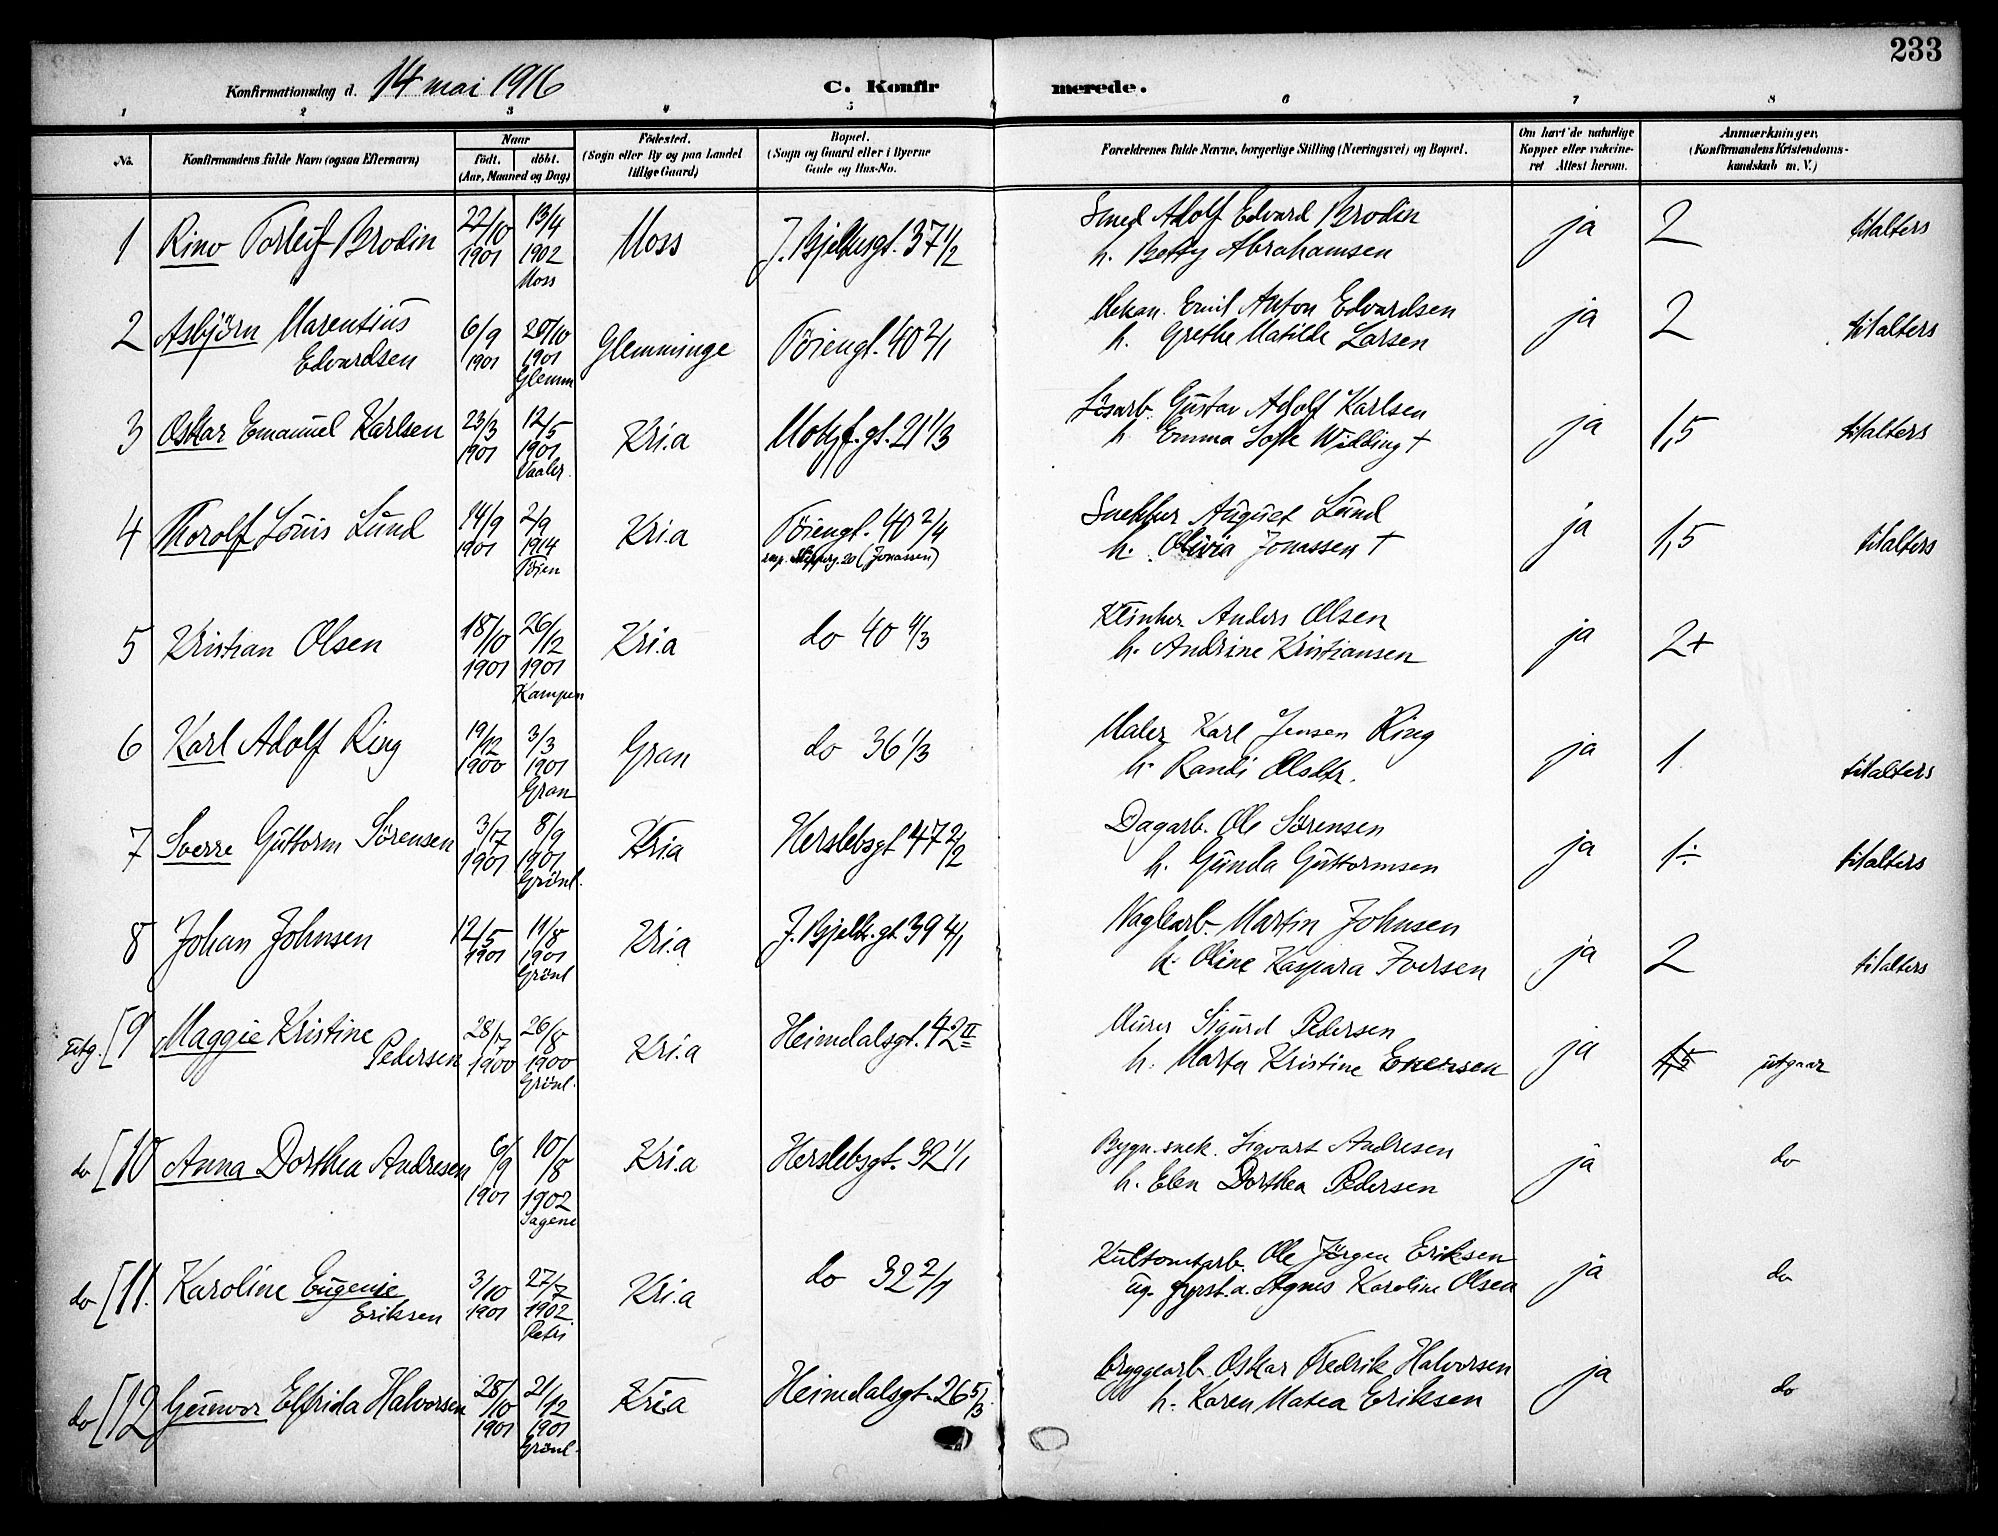 233
Konfirmationsdag d. 14 mai 1916 C. Konfir merede.
1 2 3 4 5 6 7 8
No. Konfirmandens fulde Navn (ogsaa Efternavn) Naar født. døbt. (Aar, Maaned og Dag) Fødested. (Sogn eller By og paa Landet tillige Gaard) Bopæl. (Sogn og Gaard eller i Byerne Gade og Hus-No. Forældrenes fulde Navne, borgerlige Stilling (Næringsvei) og Bopæl. Om havt de naturlige Kopper eller vakcineret Attest herom. Anmærkninger. (Konfirmandens Kristendomskundskab m. V.)
1 Rino Torleif Brodin 22/10 1901 13/4 1902 Moss Moss J. Bjelkesgt. 37 1/2
Smed Adolf Edvard Brodin
h. Betty Abrahamsen ja 2 tilalters
2 Asbjörn Marentius
Edvardsen 6/9 1901 20/10 1901 Glemm Glemminge Töiengt. 40 2/1
Mekan. Emil Anton Edvardsen
h. Grethe Matilde Larsen ja 2 tilalters
3 Oskar Emanuel Karlsen 23/3 1901 12/5 1901 Vaaler Kri.a Motzf.gt. 21 1/3
Lösarb. Gustav Adolf Karlsen
h. Emma Sofie Wilding † ja 1,5 tilalters
4 Thorolf Louis Lund 14/9 1901 2/9 1914 Töien Kri.a Töiengt. 40 2/4
20 (Jonassen)
Snekker August Lund
h. Olivia Jonassen † ja 1,5 tilalters
5 Kristian Olsen 18/10 1901 26/12 1901 Kampen Kri.a do 40 4/3
Anders Olsen
h. Andrine Kristiansen ja 2+
6 Karl Adolf Ring 19/12 1900 3/3 1901 Gran Gran do 36 1/3
Maler Karl Jensen Ring
h. Randi Olsdtr. ja 1 tilalters
7 Sverre Guttorm Sörensen 3/7 1901 8/9 1901 Grönl. Kri.a Herslebsgt 47 2/2
Dagarb. Ole Sörensen
h. Gunda Guttormsen ja 1÷ tilalters
8 Johan Johnsen 12/5 1901 11/8 1901 Grönl Kri.a J. Bjelk.gt. 39 4/1
Naglearb. Martin Johnsen
h. Oline Kaspara Iversen ja 2 tilalters
utg. [9 Maggie Kristine
Pedersen 28/7 1900 26/8 1900 Grönl. Kri.a Heimdalsgt. 42 II
Murer Sigurd Pedersen
h. Marta Kristine Enersen ja 1,5 utgaar
do [10 Anna Dorthea Andresen 6/9 1901 10/8 1902 Sagene Kri.a Herslebsgt. 32 1/1
Bygn.snek. Sigvart Andresen
h. Elen Dorthea Pedersen ja do
do [11. Karoline Eugenie
Eriksen 3/10 1901 27/7 1902. Petri Kri.a do 32 2/1
Ole Jörgen Eriksen
Agnes Karoline Olsen ja do
do [12 Gunvor Elfrida Halvorsen 28/10 1901 21/12 1901 Grönl. Kri.a Heimdalsgt. 26 5/3
Bryggearb. Oskar Fredrik Halvorsen
h. Karen Matea Eriksen ja do